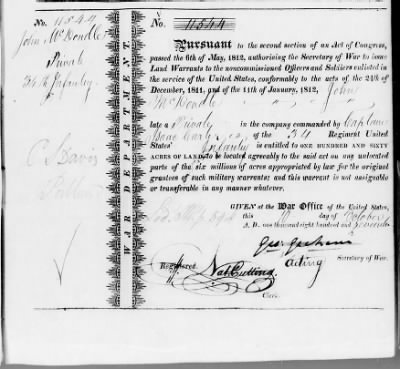 No. 11544
John McKondle
Private
34th Infantry
C Davis
WAR DEPARTMENT.
No. 11544
Pursuant to the second section of an Act of Congress,
passed the 6th of May, 1812, authorising the Secretary of War to issue
Land Warrants to the noncommissioned Officers and Soldiers enlisted in
the service of the United States, conformably to the acts of the 24th of
December, 1811, and of the 11th of January, 1812, John
McKondle
late a Private in the company commanded by Captain
Isaac Carter of the 34 Regiment United
States' Infantry is entitled to ONE HUNDRED AND SIXTY
ACRES OF LAND, to be located agreeably to the said act on any unlocated
parts of the six millions of acres appropriated by law for the original
grantees of such military warrants; and this warrant is not assignable
or transferable in any manner whatever.
GIVEN at the War Office of the United States,
this 10 day of October
A. D. one thousand eight hundred and Seventeen
Geo: Graham
acting Secretary of War.
Registered. Nat: Cutting
Clerk.